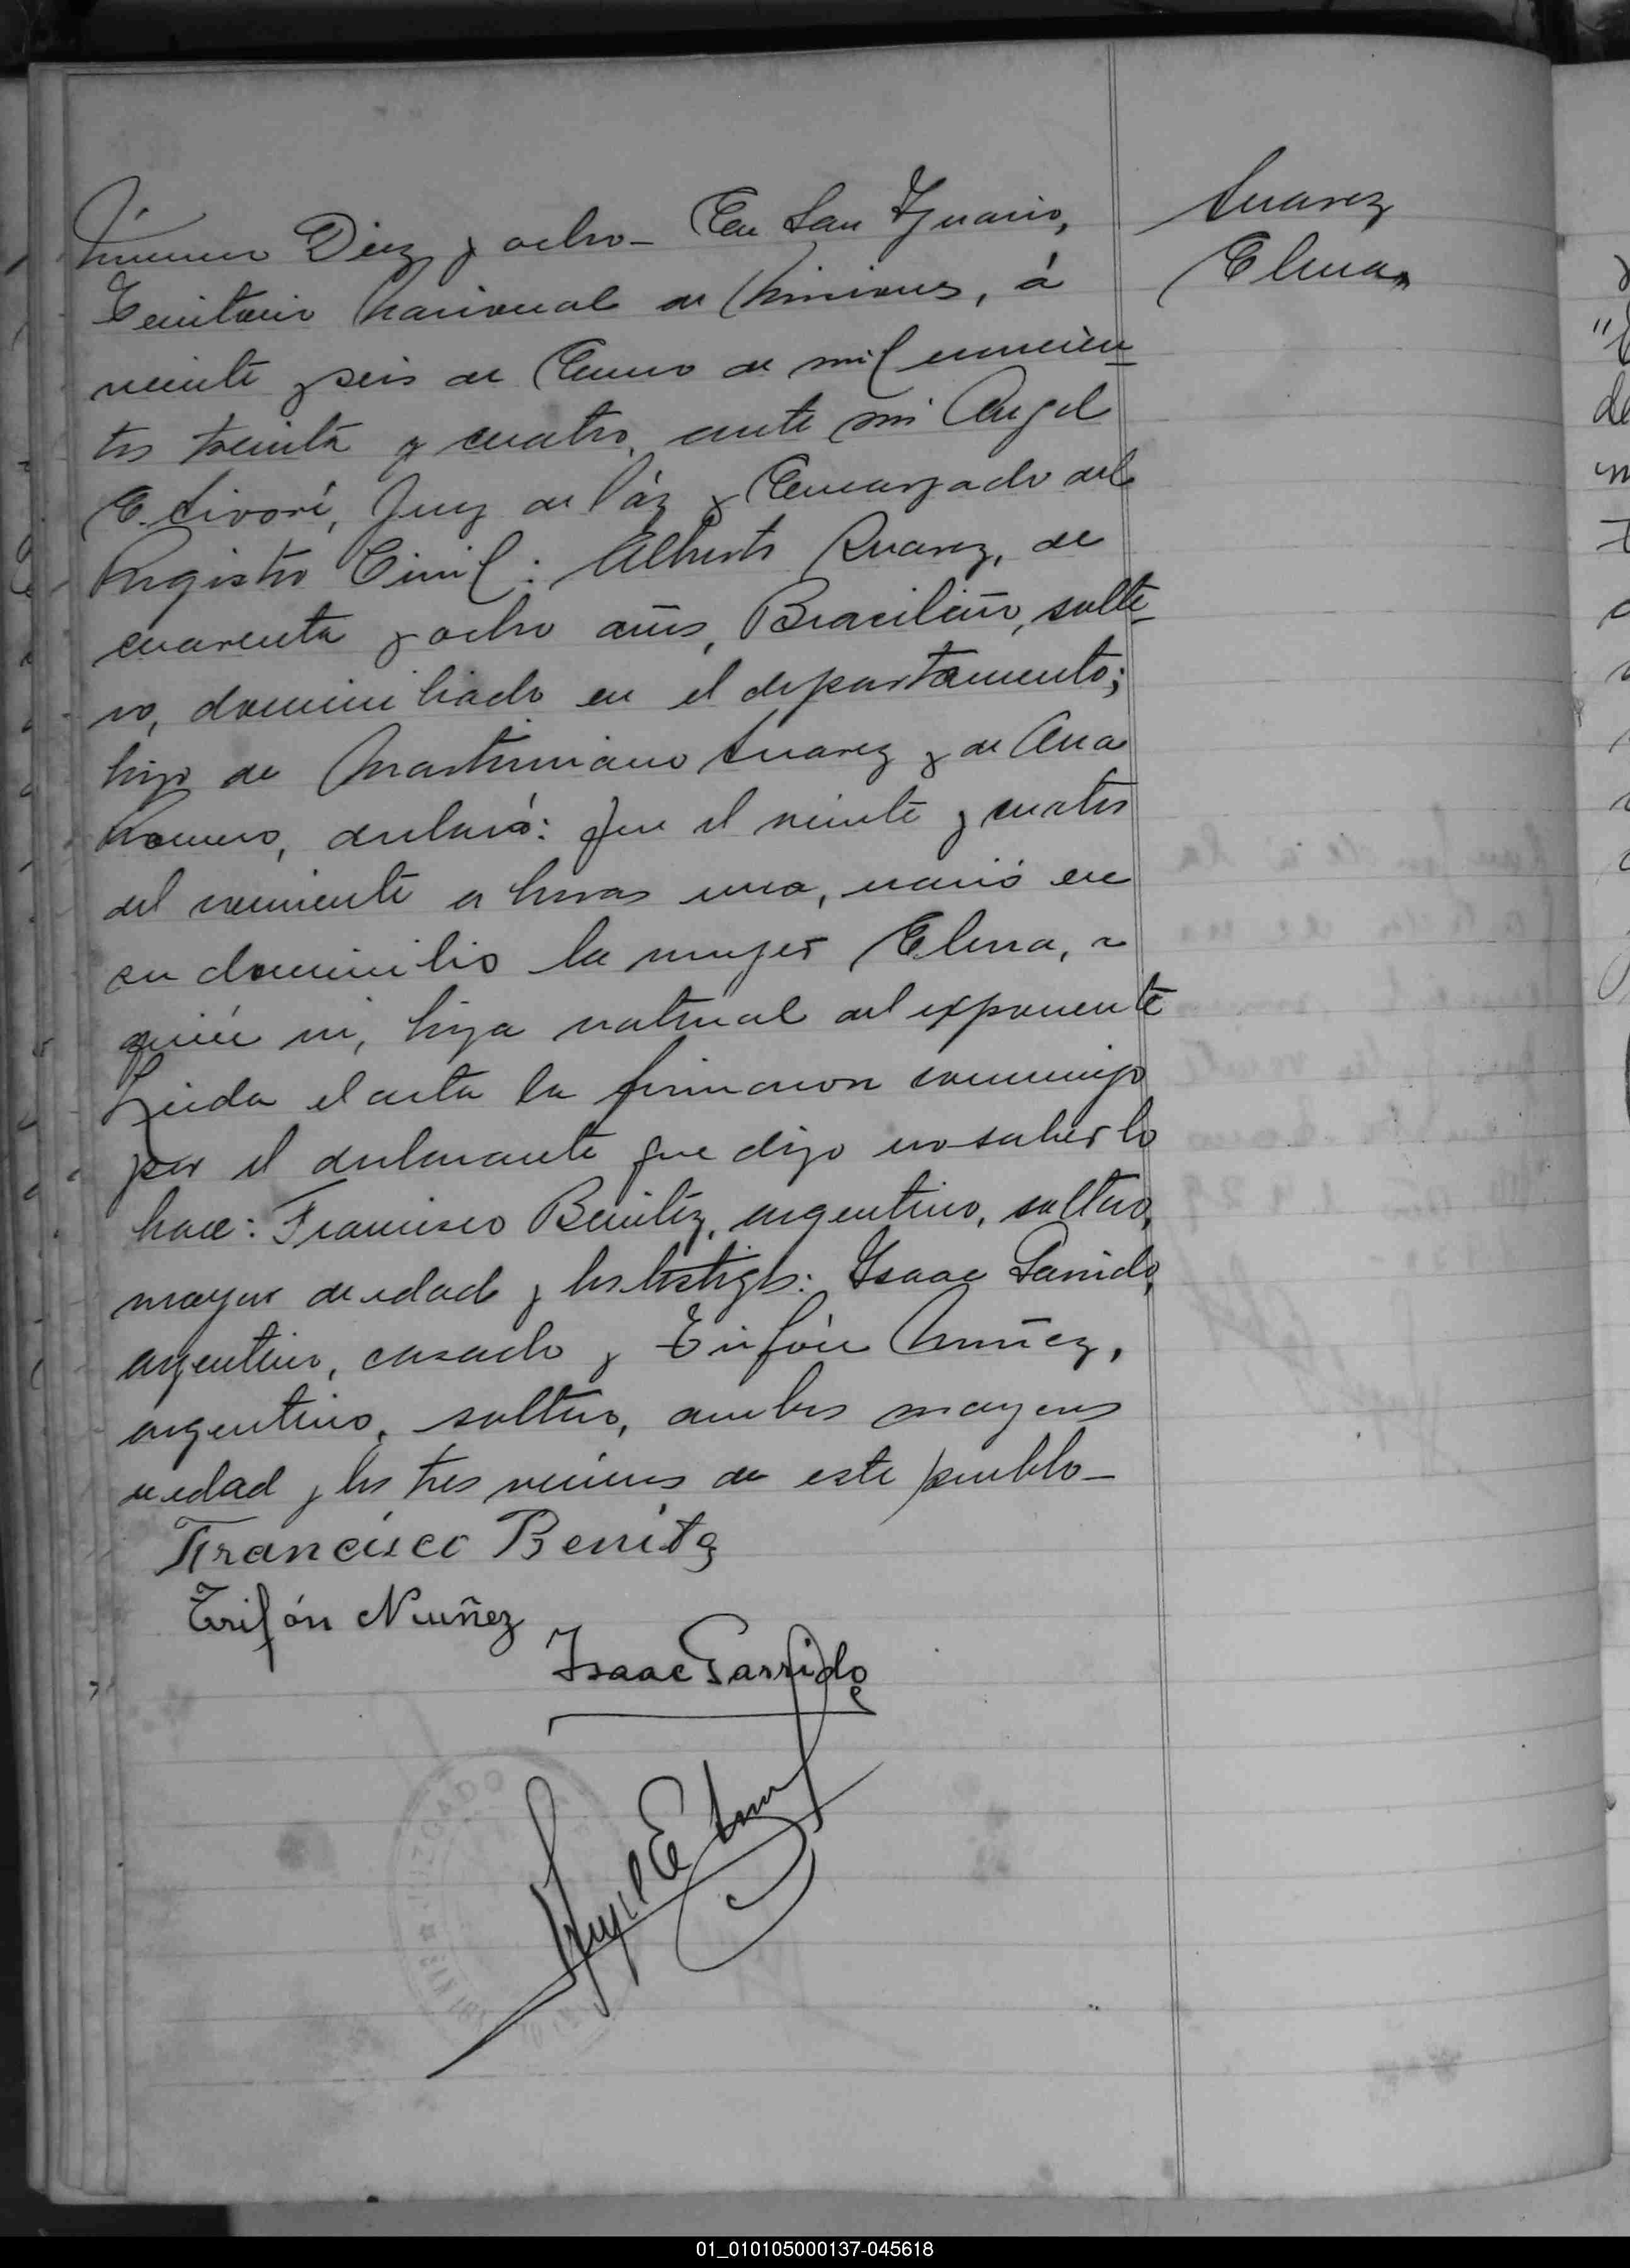 Suarez
Elena
Número Diez y ocho - En San Ignacio,
Territorio Nacional de Misiones, á
veinte y seis de Enero de mil novecien-
tos treinta y cuatro, ante mi Angel
E. Juez de Páz y Encargado del
Registro Civil: Alberto Suarez, de
cuarenta y ocho años, Brasileño, solte-
ro, domiciliado en el departamento;
hijo de Suarez y de Ana
Romero, declaró: Que el veinte y cuatro
del corriente a horas una, nació en
su domicilio la mujer Elena, a
quien ví, hija natural del exponente
Leida el acta la firmaron conmigo
por el declarante que dijo no saber lo
hace: Francisco Benitez, argentino, soltero,
mayor de edad y los testigos: Isaac Garrido,
argentino, casado y Trifón Nuñez,
argentino, soltero, ambos mayores
de edad y los tres vecinos de este pueblo-
Francisco Benitez
Trifón Nuñez
Isaac Garrido
Angel E
JUZGADO
01_010105000137-045618